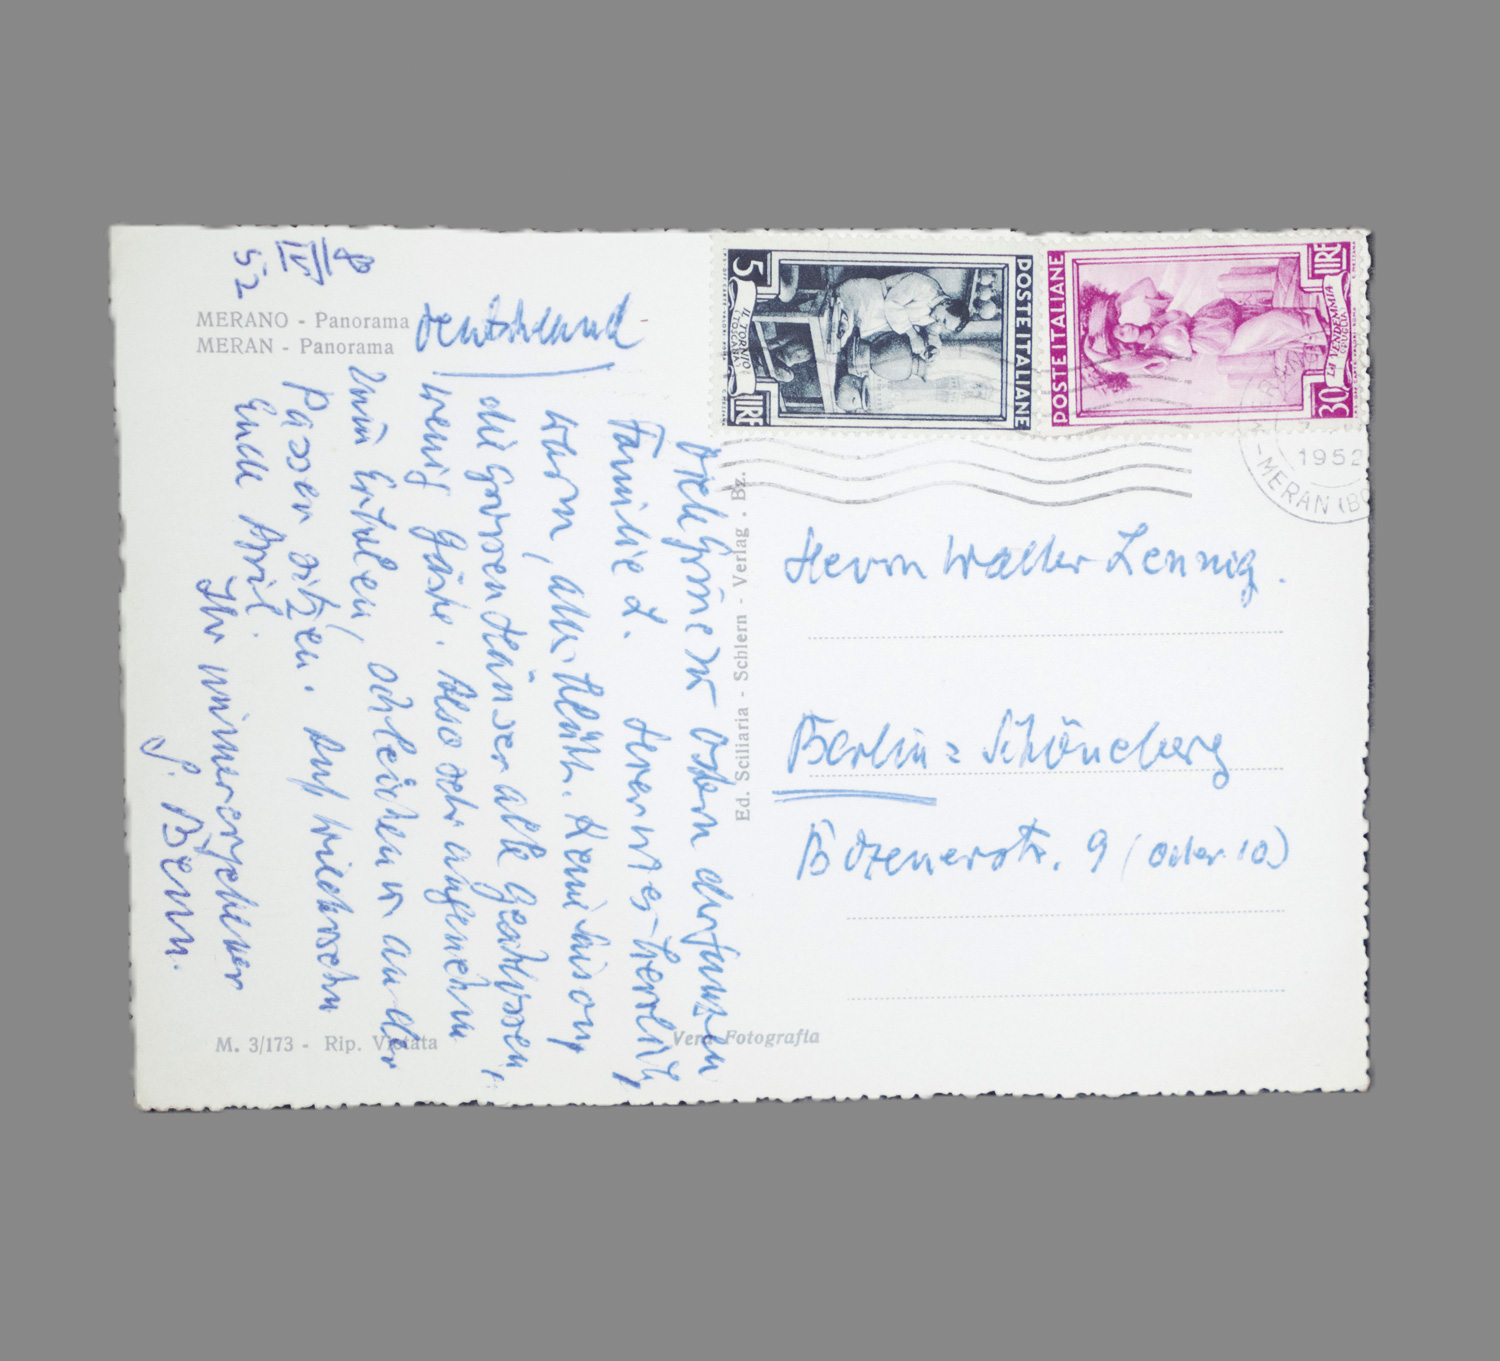 8
IV
52
MERANO - Panorama
MERAN - Panorama
Deutschland
Viele Grüsse zu Ostern der ganzen
Familie L. Hier ist es herrlich,
warm, alles blüht. Keine Saison,
die grossen Häuser alle geschlossen,
wenig Gäste. Also sehr angenehm
zum Erholen, schleichen u an der
Passer sitzen. Auf Wiedersehn
Ende April.
Ihr
G. Benn.
M. 3/173 - Rip. Vietata
Vera Fotografia
Ed. Sciliaria - Schlern - Verlag . Bz.
5 LIRE
IL TORNIO
(TOSCANA)
POSTE ITALIANE
POSTE ITALIANE
30 LIRE
LA VENDEMMIA
(PUGLIA)
1952
-MERAN (B
Herrn Walter Lennig.
Berlin = Schöneberg
Bozenerstr. 9 (oder 10)